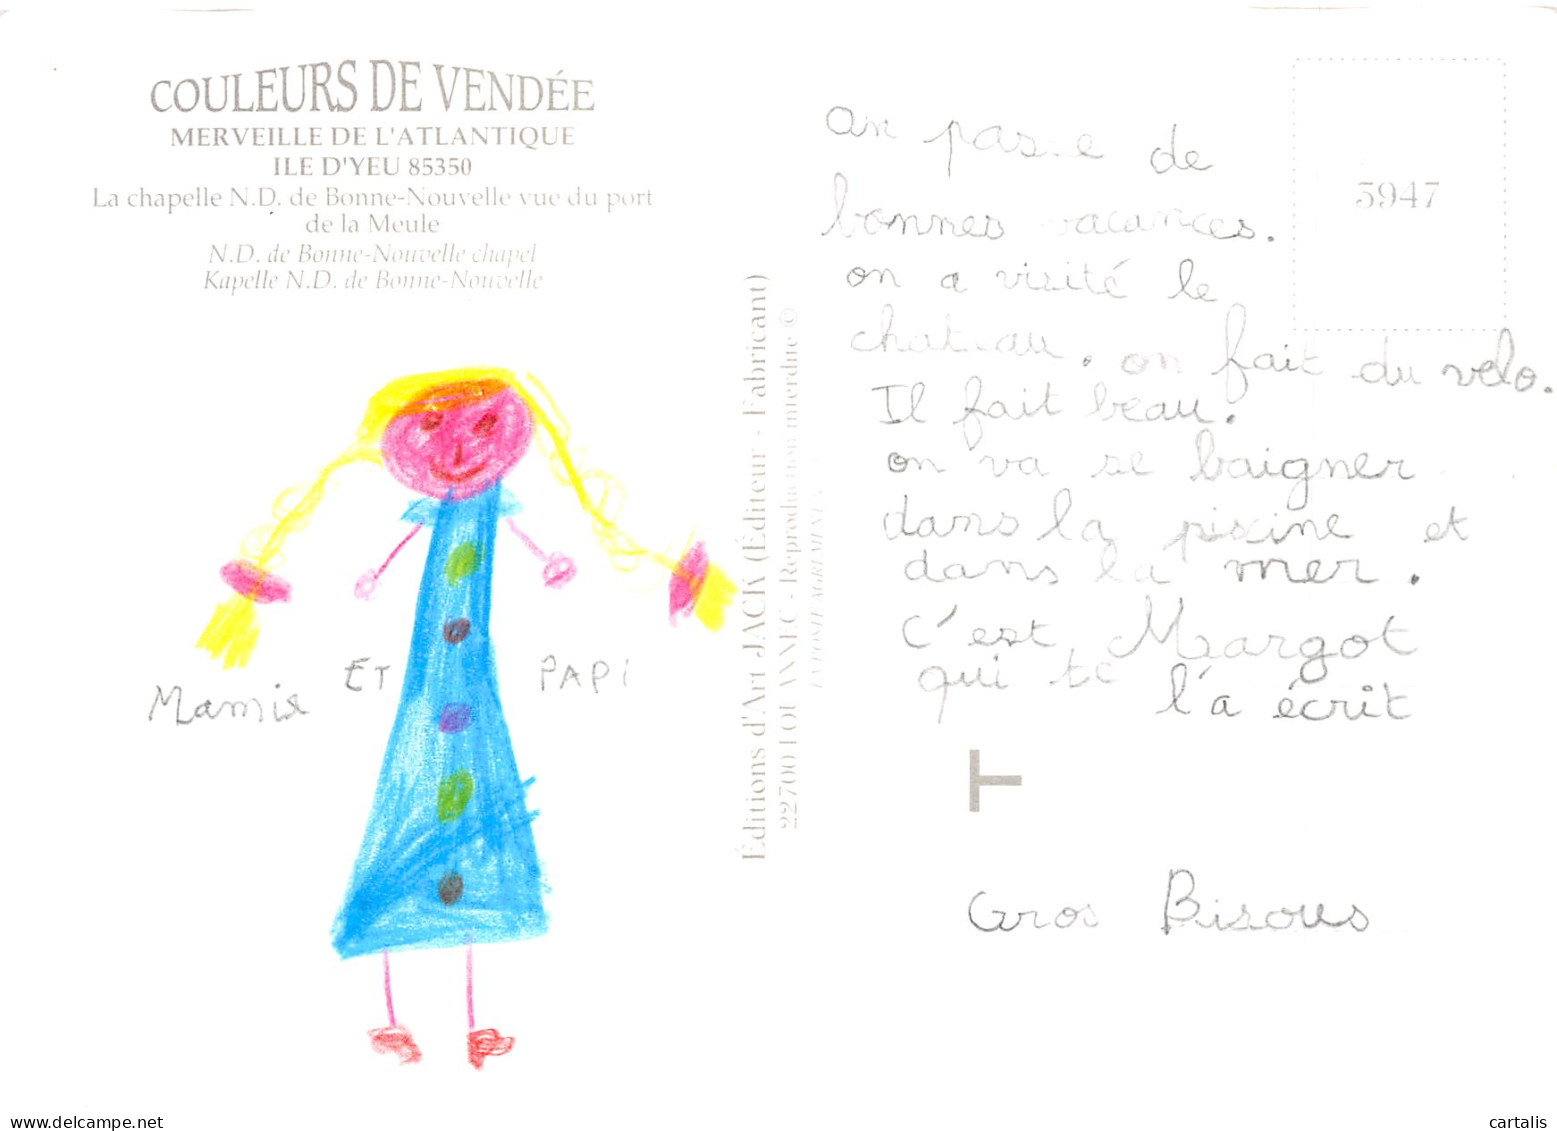 COULEURS DE VENDÉE
MERVEILLE DE L'ATLANTIQUE
ILE D'YEU 85350
La chapelle N.D. de Bonne-Nouvelle vue du port
de la Meule
N.D. de Bonne-Nouvelle chapel
Kapelle N.D. de Bonne-Nouvelle
Mamie ET PAPI
Éditions d'Art JACK (Éditeur - Fabricant)
22700 LOUANNEC - Reproduction interdite ©
5947
an passe de
bonnes vacances.
on a visité le
chateau. on fait du velo.
Il fait beau.
on va se baigner
dans la piscine et
dans la mer.
C'est Margot
qui te l'a écrit
T
Gros Bisous
www.delcampe.net
cartalis